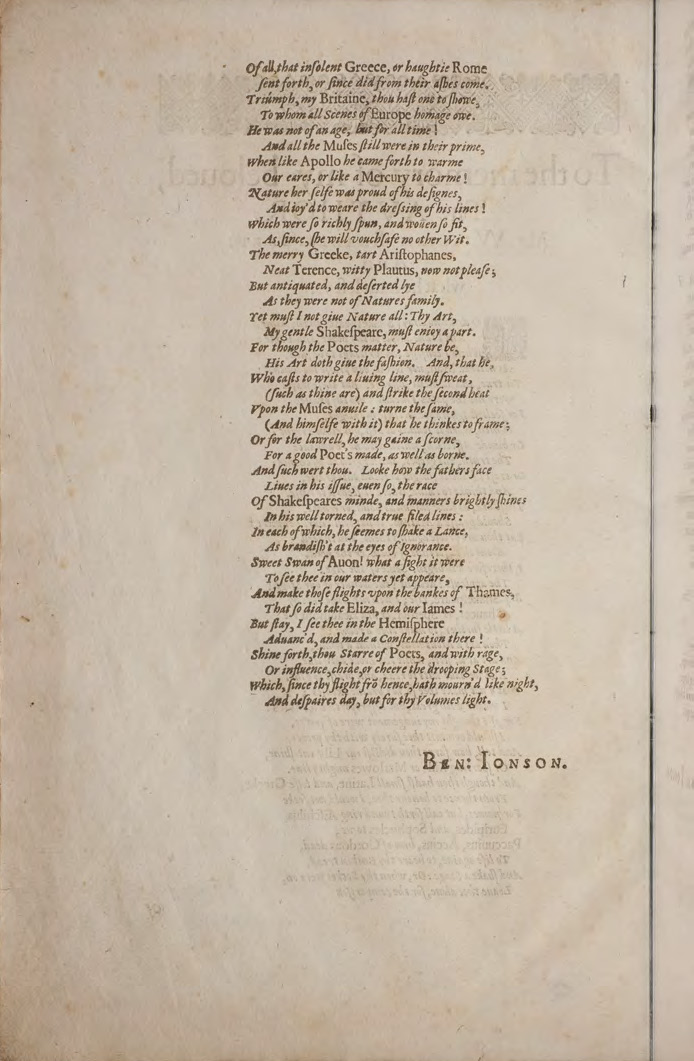 Of all, that insolent Greece, or haughtie Rome
ſent forth, or ſince did from their aſhes come.
Triúmph, my Britaine, thou haſt one to ſhowe,
To whom all Scenes of Europe homage owe.
He was not of an age, but for all time !
And all the Muſes ſtill were in their prime,
When like Apollo he came forth to warme
Our eares, or like a Mercury to charme !
Nature her ſelfe was proud of his deſignes,
And ioy'd to weare the dreſsing of his lines !
Which were ſo richly ſpun, and wouen ſo fit,
As, ſince, ſhe will vouchſafe no other Wit.
The merry Greeke, tart Ariſtophanes,
Neat Terence, witty Plautus, now not pleaſe;
But antiquated, and deſerted lye
As they were not of Natures family.
Yet muſt I not giue Nature all : Thy Art,
My gentle Shakeſpeare, muſt enioy a part.
For though the Poets matter, Nature be,
His Art doth giue the faſhion. And, that he,
Who caſts to write a liuing line, muſt ſweat,
(ſuch as thine are) and ſtrike the ſecond heat
Vpon the Muſes anuile : turne the ſame,
(And himſelfe with it) that he thinkes to frame;
Or for the lawrell, he may gaine a ſcorne,
For a good Poet's made, as well as borne.
And ſuch wert thou. Looke how the fathers face
Liues in his iſſue, euen ſo, the race
Of Shakeſpeares minde, and manners brightly ſhines
In his well torned, and true filed lines :
In each of which, he ſeemes to ſhake a Lance,
As brandiſh't at the eyes of Ignorance.
Sweet Swan of Auon! what a ſight it were
To ſee thee in our waters yet appeare,
And make thoſe flights vpon the bankes of Thames,
That ſo did take Eliza, and our Iames !
But ſtay, I ſee thee in the Hemiſphere
Aduanc'd, and made a Conſtellation there !
Shine forth, thou Starre of Poets, and with rage,
Or influence, chide, or cheere the drooping Stage;
Which, ſince thy flight frō hence, hath mourn'd like night,
And deſpaires day, but for thy Volumes light.
BEN: IONSON.